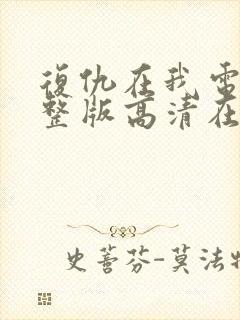 復仇在我 電
整版高清在
史蒈芬-莫法特